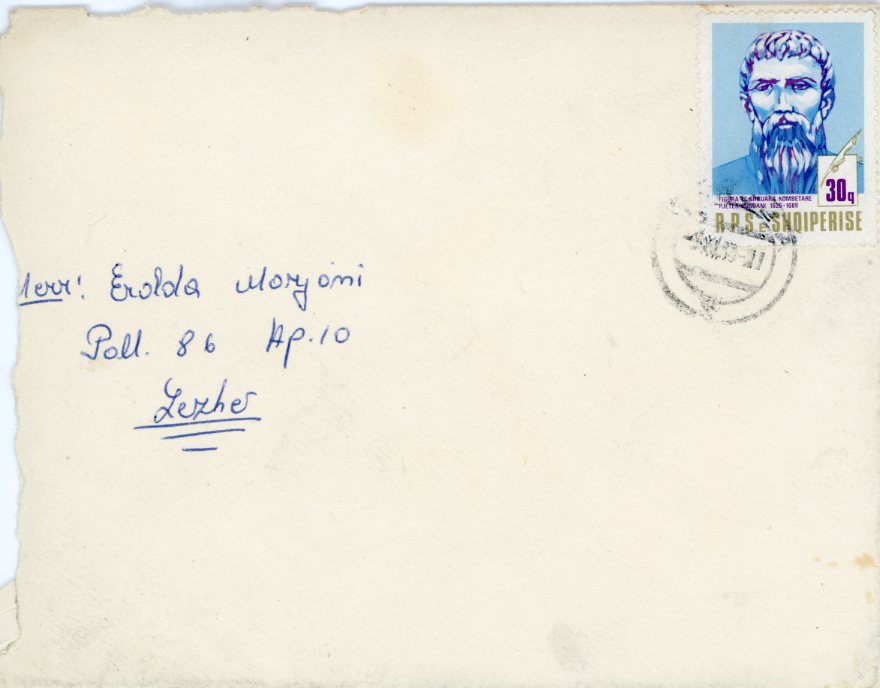 30q
FIGURA TE SHQUARA KOMBETARE
PJETER BOGDANI 1625-1689
R P S e SHQIPERISE
Merr: Erolda Morjoni
Pall. 86 Ap.10
Lezhe